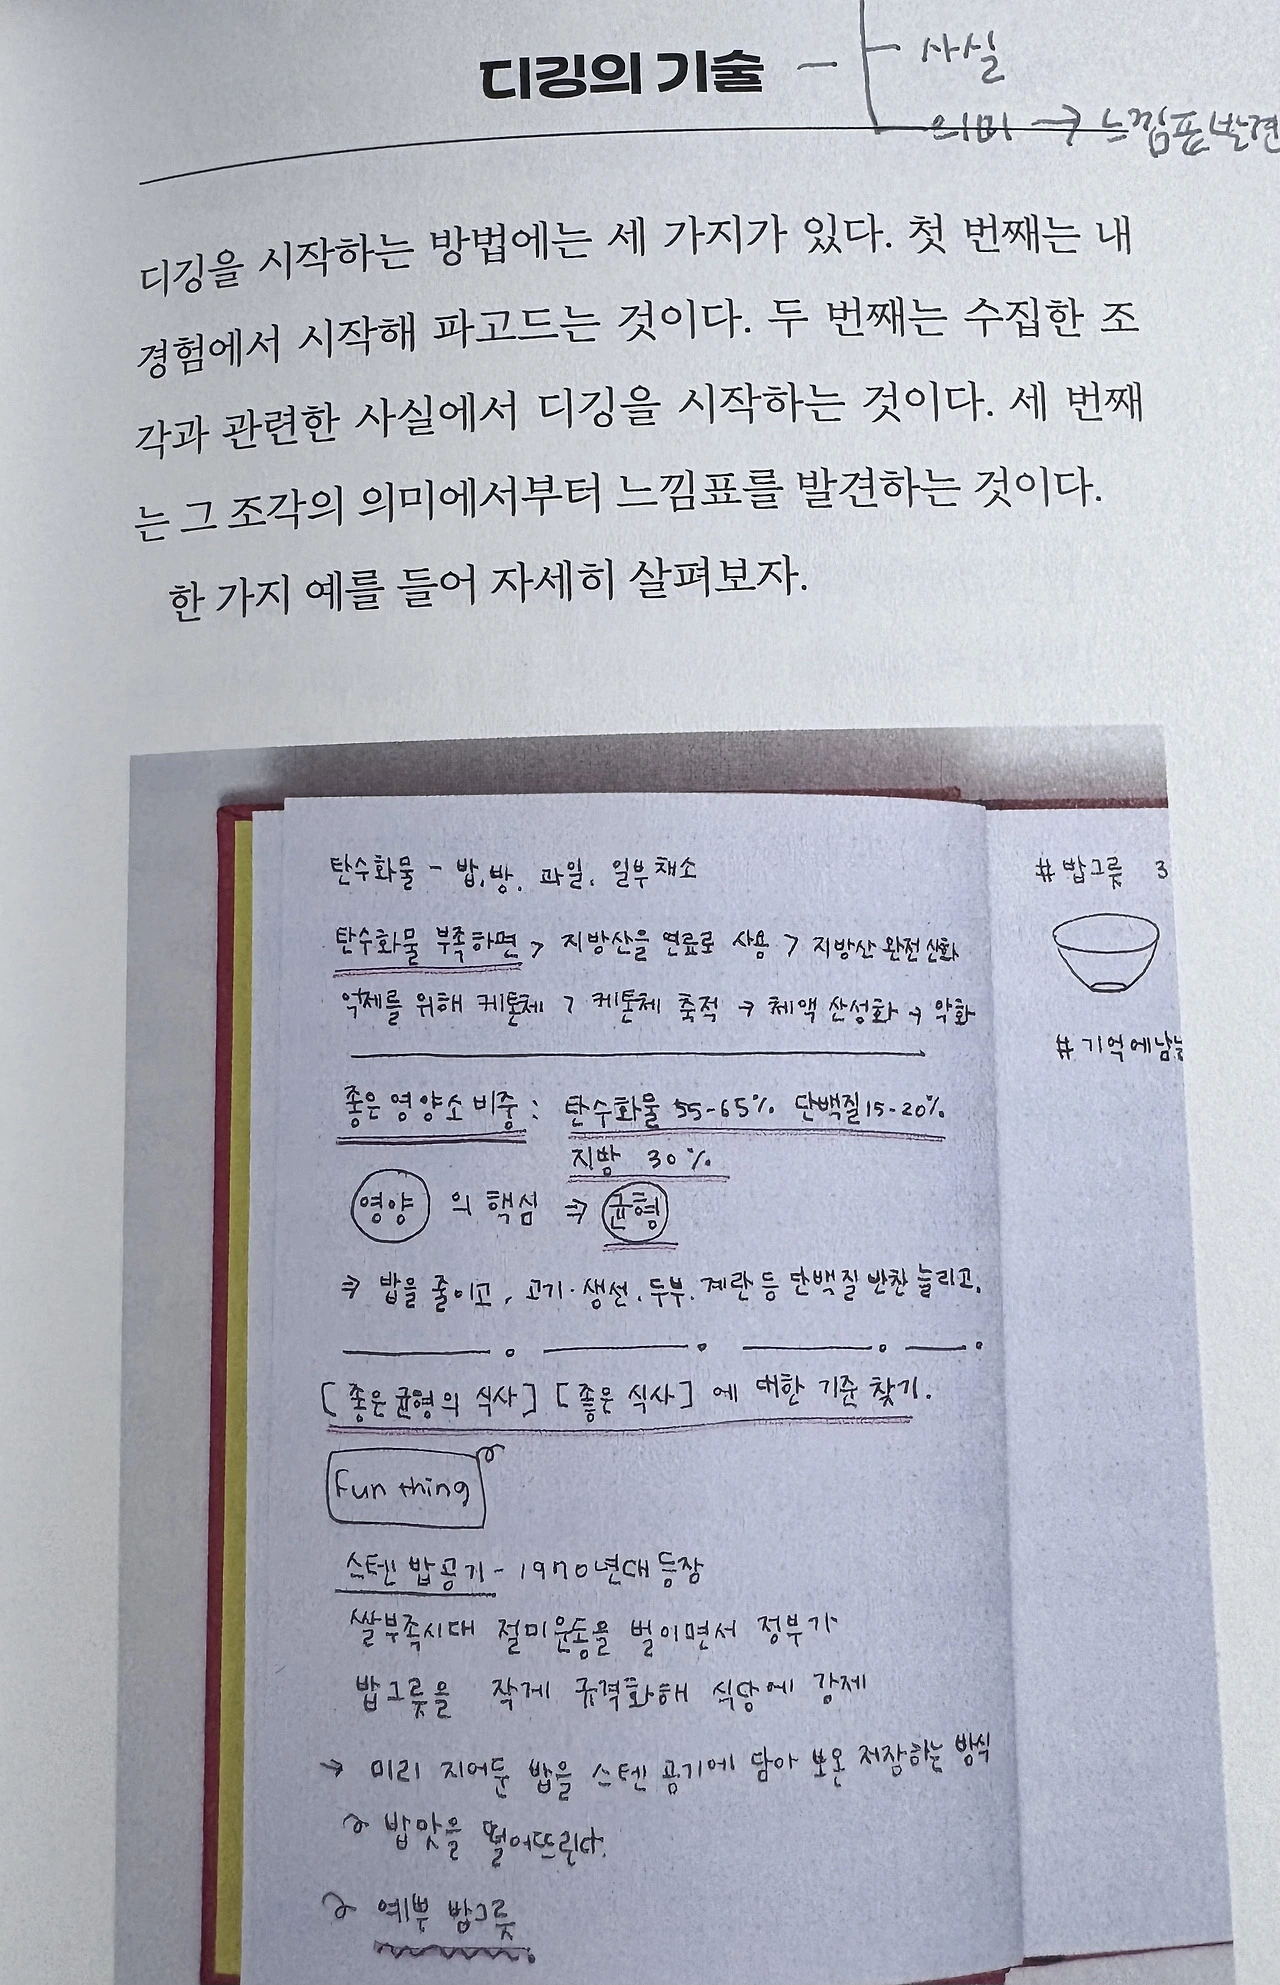 디깅의 기술 — 사실
의미 → 느낌표 발견
디깅을 시작하는 방법에는 세 가지가 있다. 첫 번째는 내
경험에서 시작해 파고드는 것이다. 두 번째는 수집한 조
각과 관련한 사실에서 디깅을 시작하는 것이다. 세 번째
는 그 조각의 의미에서부터 느낌표를 발견하는 것이다.
한 가지 예를 들어 자세히 살펴보자.
탄수화물 - 밥, 빵, 과일, 일부 채소
탄수화물 부족하면 > 지방산을 연료로 사용 > 지방산 완전 산화
억제를 위해 케톤체 > 케톤체 축적 → 체액 산성화 → 악화
좋은 영양소 비중 : 탄수화물 55-65% 단백질 15-20%
지방 30%
영양 의 핵심 ⇒ 균형
⇒ 밥을 줄이고, 고기·생선, 두부, 계란 등 단백질 반찬 늘리고,
[좋은 균형의 식사] [좋은 식사] 에 대한 기준 찾기.
Fun thing
스텐 밥공기 - 1970년대 등장
쌀부족시대 절미운동을 벌이면서 정부가
밥그릇을 작게 규격화해 식당에 강제
→ 미리 지어둔 밥을 스텐 공기에 담아 보온 저장하는 방식
→ 밥맛을 떨어뜨린다.
→ 예쁜 밥그릇
# 밥그릇 3
# 기억에남는